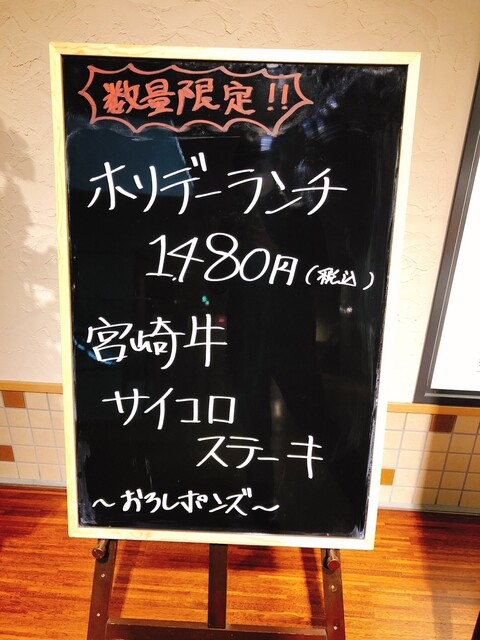 数量限定!!
ホリデーランチ
1,480円(税込)
宮崎牛
サイコロ
ステーキ
~おろしポンズ~